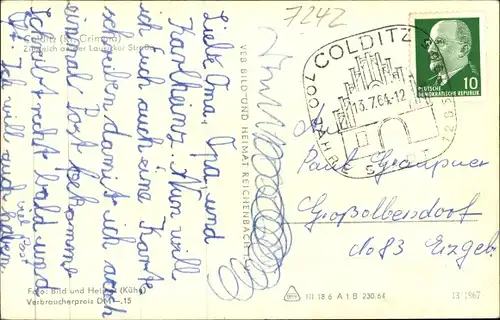 7242
Colditz (Kr. Grimma)
Zughaich an der Lausicker Straße
Liebe Oma, Opa, und
Karlheinz. Nun will
ich euch auch eine Karte
schreiben damit ich auch
einmal Post bekomme
Schreibt recht bald und
Ich will auch haben
viel Post
VEB BILD UND HEIMAT REICHENBACH I. V.
Foto: Bild und Heimat (Kühn)
Verbraucherpreis DM –,15
COLDITZ
13.7.64-12
700 JAHRE STADT
1265
DEUTSCHE
DEMOKRATISCHE REPUBLIK
10
Paul Graupner
Großolbersdorf
No 83 Erzgeb.
III 18 6 A 1 B 230/64
13 1967